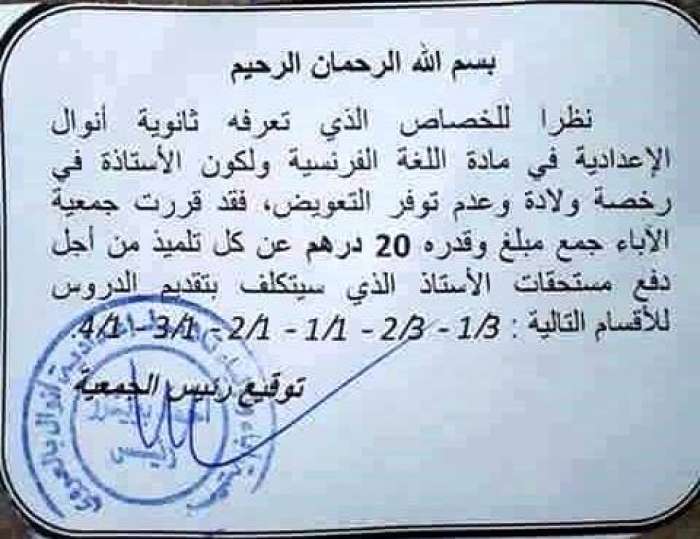 بسم الله الرحمان الرحيم
نظرا للخصاص الذي تعرفه ثانوية أنوال
الإعدادية في مادة اللغة الفرنسية ولكون الأستاذة في
رخصة ولادة وعدم توفر التعويض، فقد قررت جمعية
الآباء جمع مبلغ وقدره 20 درهم عن كل تلميذ من أجل
دفع مستحقات الأستاذ الذي سيتكلف بتقديم الدروس
للأقسام التالية : 1/3 – 2/3 – 1/1 – 2/1 – 3/1 – 4/1
توقيع رئيس الجمعية
رئيس